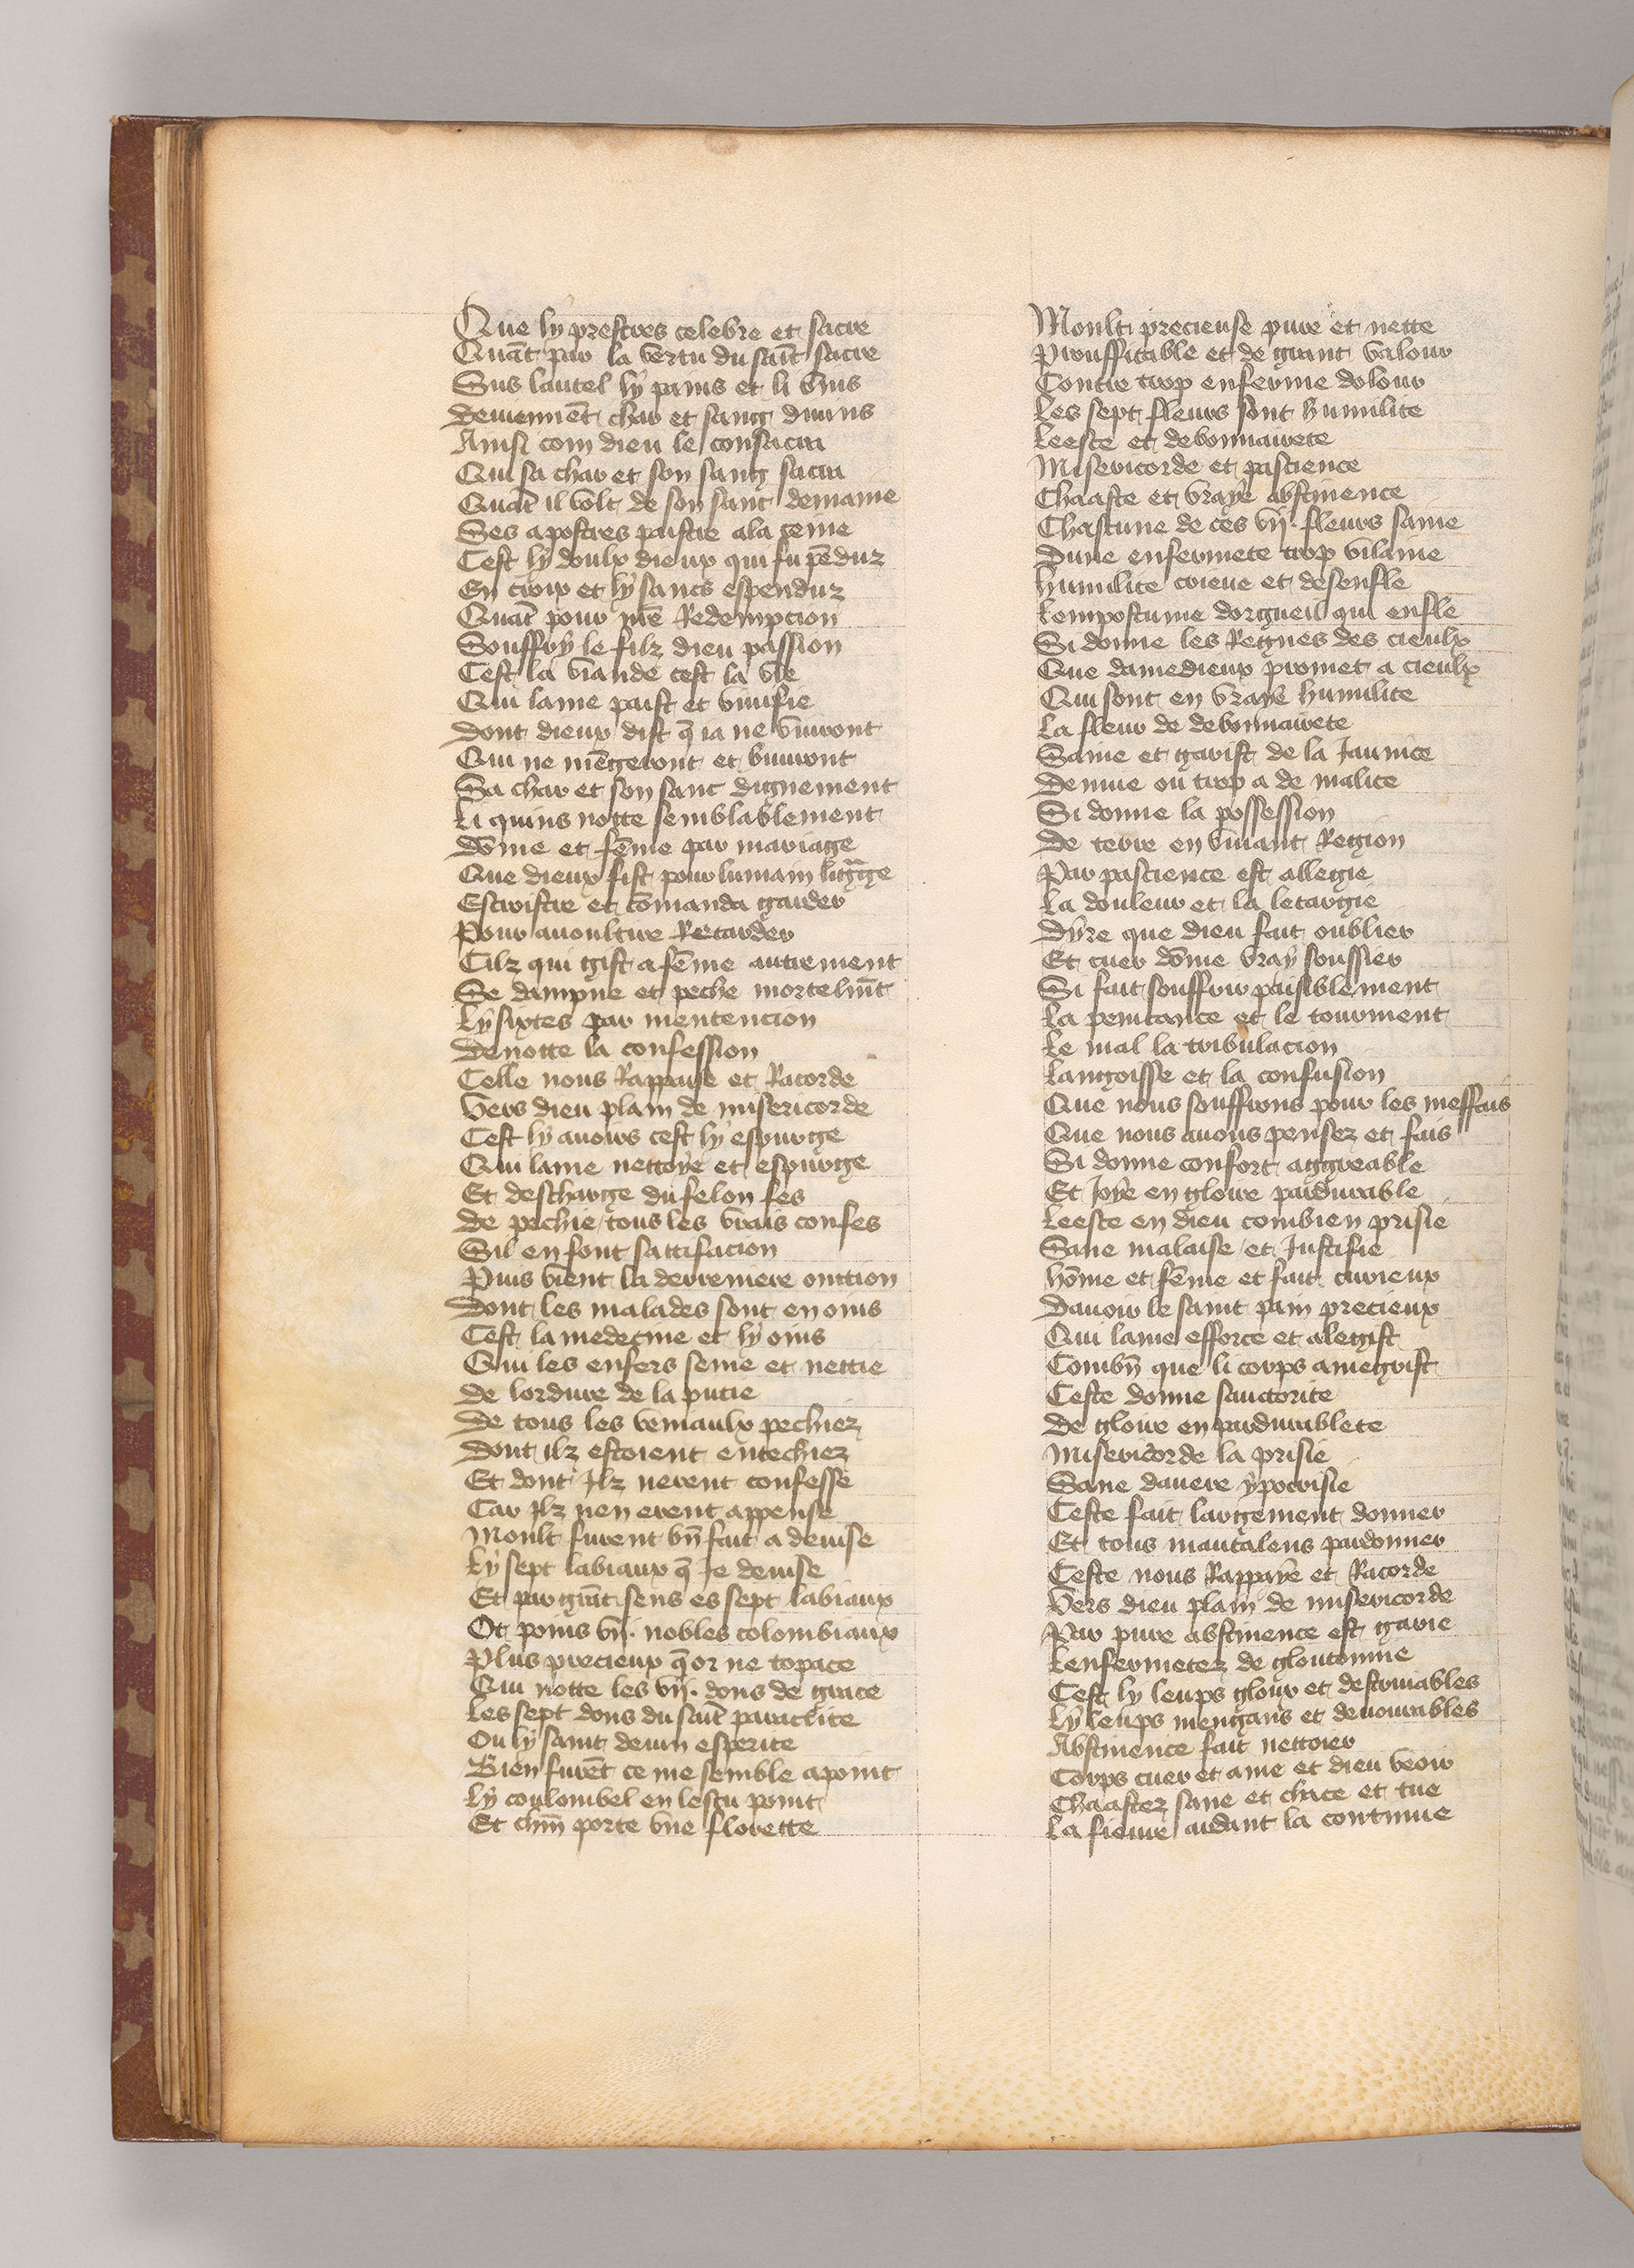 Que ly prestres celebre et sacre
Quāt par la vertu du sait̄ sacre
Sus lautel ly pains et li vins
deuiennēt char et sang diuins
Ainsi com dieu le consacra
Qui sa char et son sang sacra
Quāt il volt de son sanc demaine
Ses apostres paistre a la ceine
Cest ly doulx dieux qui fu pēduz
En croix et ly sancs espenduz
Quāt pour nrē Redempcion
Souffry le filz dieu passion
Cest la viande cest la vie
Qui lame paist et viuifie
dont dieux dist q̄ ia ne viuront
Qui ne mēgeront et buuront
Sa char et son sanc dignement
Li quins notte semblablement
dōme et fēme par mariage
Que dieux fist pour lumain lignage
Escristre et cōmanda garder
Pour auoultire Retarder
Cilz qui gist a fēme autrement
Se dampne et peche mortelmt̄
Ly sixtes par mentencion
denotte la confession
Celle nous Rappaise et Racorde
Vers dieu plain de misericorde
Cest ly auoirs cest ly espurge
Qui lame nettoye et espurge
Et descharge du felon fes
de pechie tous les vrais confes
Sil en font sattifacion
Puis vient la derreniere onction
dont les malades sont enoins
Cest la medecine et ly oins
Qui les enfers seine et nettie
de lordure de la putie
de tous les veniaulx pechiez
dont ilz estoient entechiez
Et dont Ilz nerent confesse
Car Ilz nen erent appense
Moult furent bn̄ fait a deuise
Ly sept labiaux q̄ Je deuise
Et par grāt sens es sept labiaux
Ot poins vij. nobles colombiaux
Plus precieux q̄ or ne topace
Qui notte les vij. dons de grace
Les sept dons du sait̄ paraclite
Ou ly saint deuin esperite
Bien furēt ce me semble a point
Ly coulombel en lescu point
Et chm̄ porte vne florette
Moult precieuse pure et nette
Prouffitable et de grant valour
Contre trop enferme dolour
Les sept fleurs sont humilite
Leeste et debonnairete
Misericorde et pascience
Chaaste et vraye abstinence
Chascune de ces vij. fleurs saine
Dune enfermete trop vilaine
humilite crieue et desenfle
Lempostume dorgueil qui enfle
Si donne les Regnes des cieulx
Que damedieux promet a cieulx
Qui sont en vraye humilite
La fleur de debonnairete
Saine et garist de la Jaunice
Denuie ou trop a de malice
Si donne la possession
De terre en viuant Region
Par pascience est allegie
La douleur et la letargie
Dyre que dieu fait oublier
Et cuer dōme vray soussier
Si fait souffrir paisiblement
La penitance et le tourment
Le mal la tribulacion
Langoisse et la confusion
Que nous souffrons pour les meffais
Que nous auons pensez et fais
Si donne confort aggreable
Et Joye en gloire pardurable
Leeste en dieu combien prisie
Sane malaise et Justifie
hōme et fēme et fait curieux
Dauoir le saint pain precieux
Qui lame efforce et alegist
Combn̄ que li corps amegrist
Ceste donne sauctorite
De gloire en pardurablete
Misericorde la prisie
Sane dauere ypocrisie
Ceste fait largement donner
Et tous mautalens pardonner
Ceste nous Rappaye et Racorde
Vers dieu plain de misericorde
Par pure abstinence est garie
Lenfermetez de gloutonnie
Cest ly leups glour et destruiables
Ly leups mengans et deuourables
Abstinence fait nettoier
Corps cuer et ame et dieu veoir
Chaastez sane et chace et tue
La fieure ardant la continue